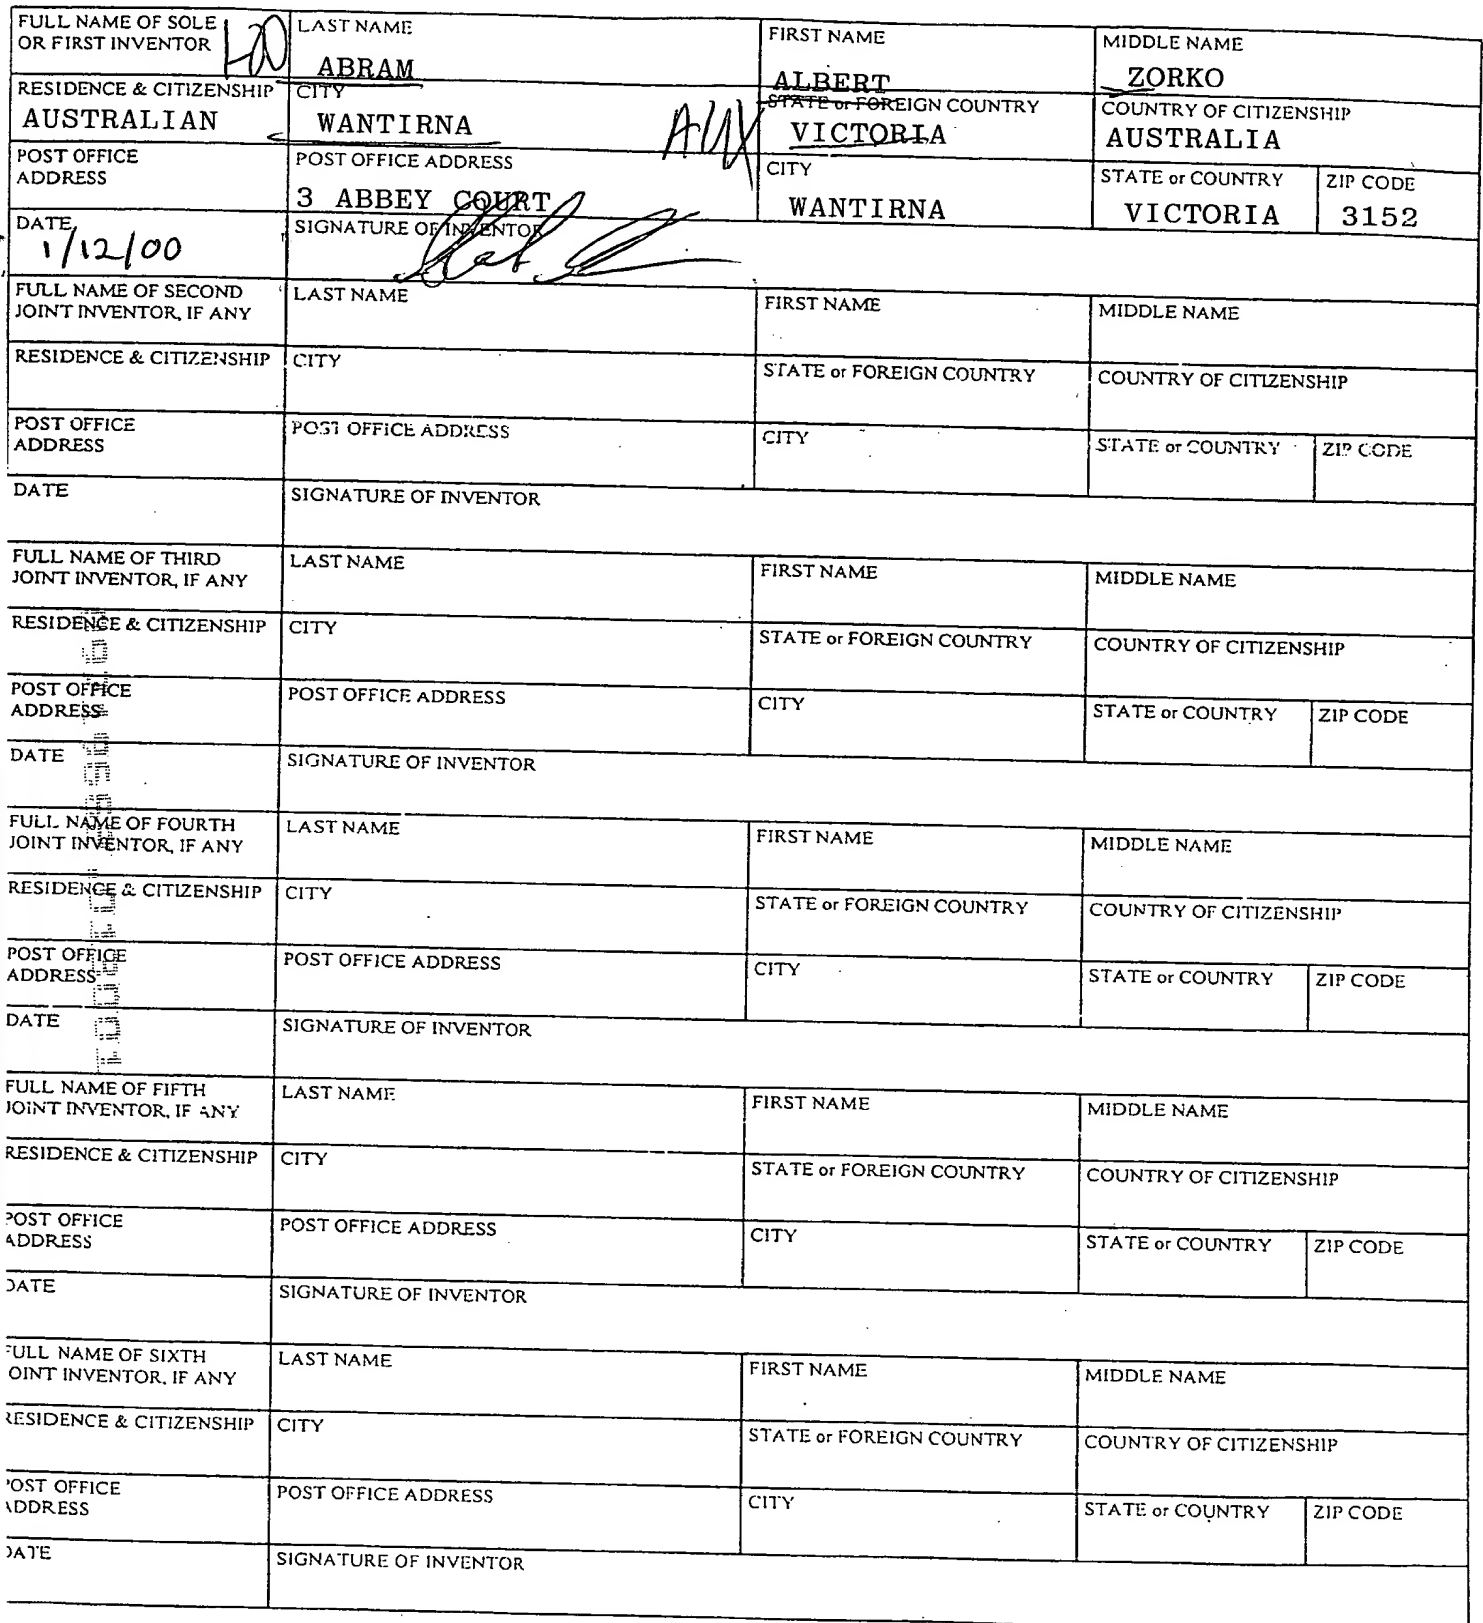 FULL NAME OF SOLE OR FIRST INVENTOR
LAST NAME
ABRAM
FIRST NAME
ALBERT
MIDDLE NAME
ZORKO
RESIDENCE & CITIZENSHIP
AUSTRALIAN
CITY
WANTIRNA
AUX
STATE or FOREIGN COUNTRY
VICTORIA
COUNTRY OF CITIZENSHIP
AUSTRALIA
POST OFFICE ADDRESS
POST OFFICE ADDRESS
3 ABBEY COURT
CITY
WANTIRNA
STATE or COUNTRY
VICTORIA
ZIP CODE
3152
DATE
1/12/00
SIGNATURE OF INVENTOR
FULL NAME OF SECOND JOINT INVENTOR, IF ANY
LAST NAME
FIRST NAME
MIDDLE NAME
RESIDENCE & CITIZENSHIP
CITY
STATE or FOREIGN COUNTRY
COUNTRY OF CITIZENSHIP
POST OFFICE ADDRESS
POST OFFICE ADDRESS
CITY
STATE or COUNTRY
ZIP CODE
DATE
SIGNATURE OF INVENTOR
FULL NAME OF THIRD JOINT INVENTOR, IF ANY
LAST NAME
FIRST NAME
MIDDLE NAME
RESIDENCE & CITIZENSHIP
CITY
STATE or FOREIGN COUNTRY
COUNTRY OF CITIZENSHIP
POST OFFICE ADDRESS
POST OFFICE ADDRESS
CITY
STATE or COUNTRY
ZIP CODE
DATE
SIGNATURE OF INVENTOR
FULL NAME OF FOURTH JOINT INVENTOR, IF ANY
LAST NAME
FIRST NAME
MIDDLE NAME
RESIDENCE & CITIZENSHIP
CITY
STATE or FOREIGN COUNTRY
COUNTRY OF CITIZENSHIP
POST OFFICE ADDRESS
POST OFFICE ADDRESS
CITY
STATE or COUNTRY
ZIP CODE
DATE
SIGNATURE OF INVENTOR
FULL NAME OF FIFTH JOINT INVENTOR, IF ANY
LAST NAME
FIRST NAME
MIDDLE NAME
RESIDENCE & CITIZENSHIP
CITY
STATE or FOREIGN COUNTRY
COUNTRY OF CITIZENSHIP
POST OFFICE ADDRESS
POST OFFICE ADDRESS
CITY
STATE or COUNTRY
ZIP CODE
DATE
SIGNATURE OF INVENTOR
FULL NAME OF SIXTH JOINT INVENTOR, IF ANY
LAST NAME
FIRST NAME
MIDDLE NAME
RESIDENCE & CITIZENSHIP
CITY
STATE or FOREIGN COUNTRY
COUNTRY OF CITIZENSHIP
POST OFFICE ADDRESS
POST OFFICE ADDRESS
CITY
STATE or COUNTRY
ZIP CODE
DATE
SIGNATURE OF INVENTOR